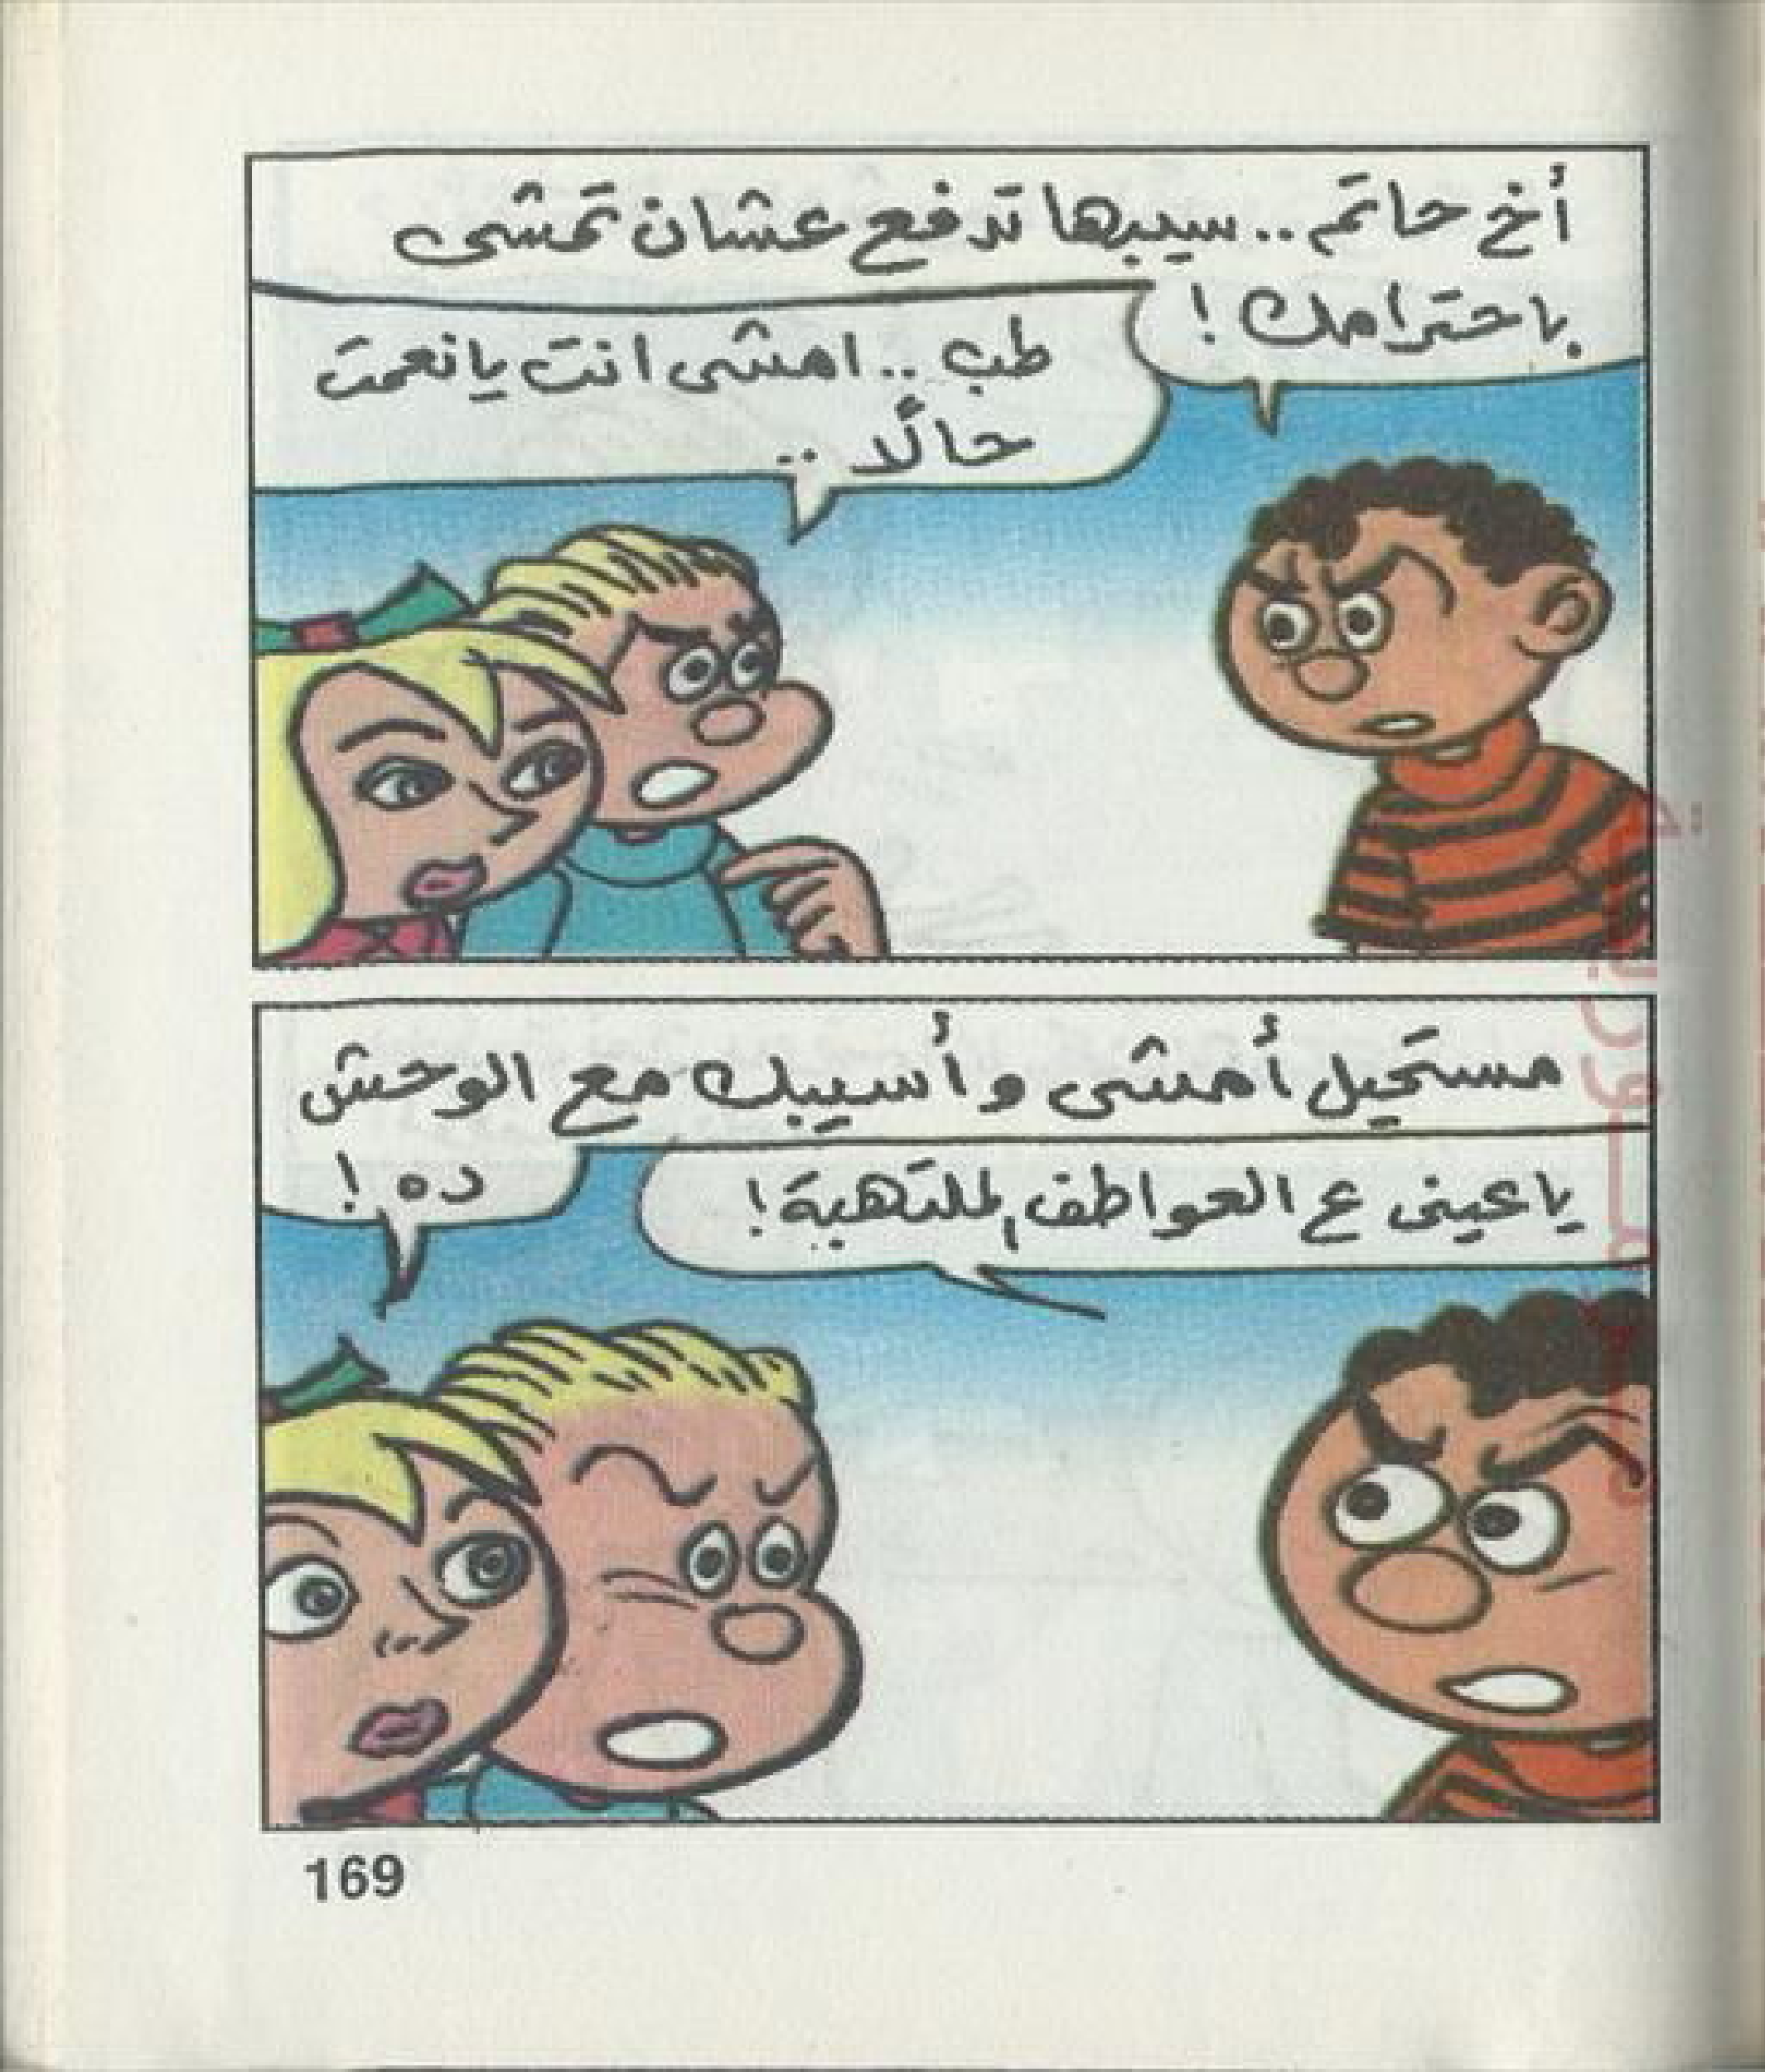 أخ حاتم.. سيبها تدفع عشان تمشى
باحترامك!
طب.. امشى انت يا نعمت
حالًا..
مستحيل أمشى وأسيبك مع الوحش
ده!
يا عينى ع العواطف الملتهبة!
169